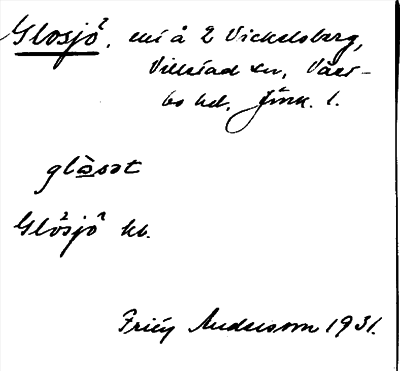 Glosjö, eni å 2 Vickelsberg,
Villstad sn, Väst-
bo hd, Jönk. l.
glòsət
Glösjö hb.
Frity Anderson 1931.